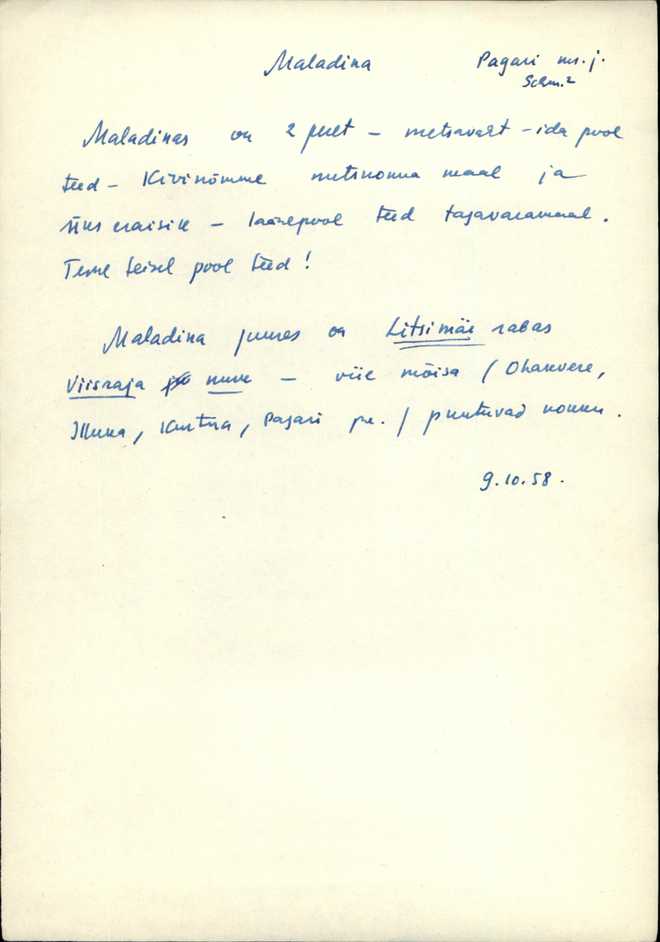 Maladina Pagari ms. j.
Schm. 2
Maladinas on 2 peret – metsavaht – ida pool
teed – Kivinõmme metskonna maal ja
üks eraisik – läänepool teed tagavaramaal.
Teine teisel pool teed!
Maladina juures on Litsimäe rabas
Viisraja nukk – viie mõisa / Ohakvere,
Illuka, Kurtna, Pagari je. / puutuvad kokku.
9.10.58.